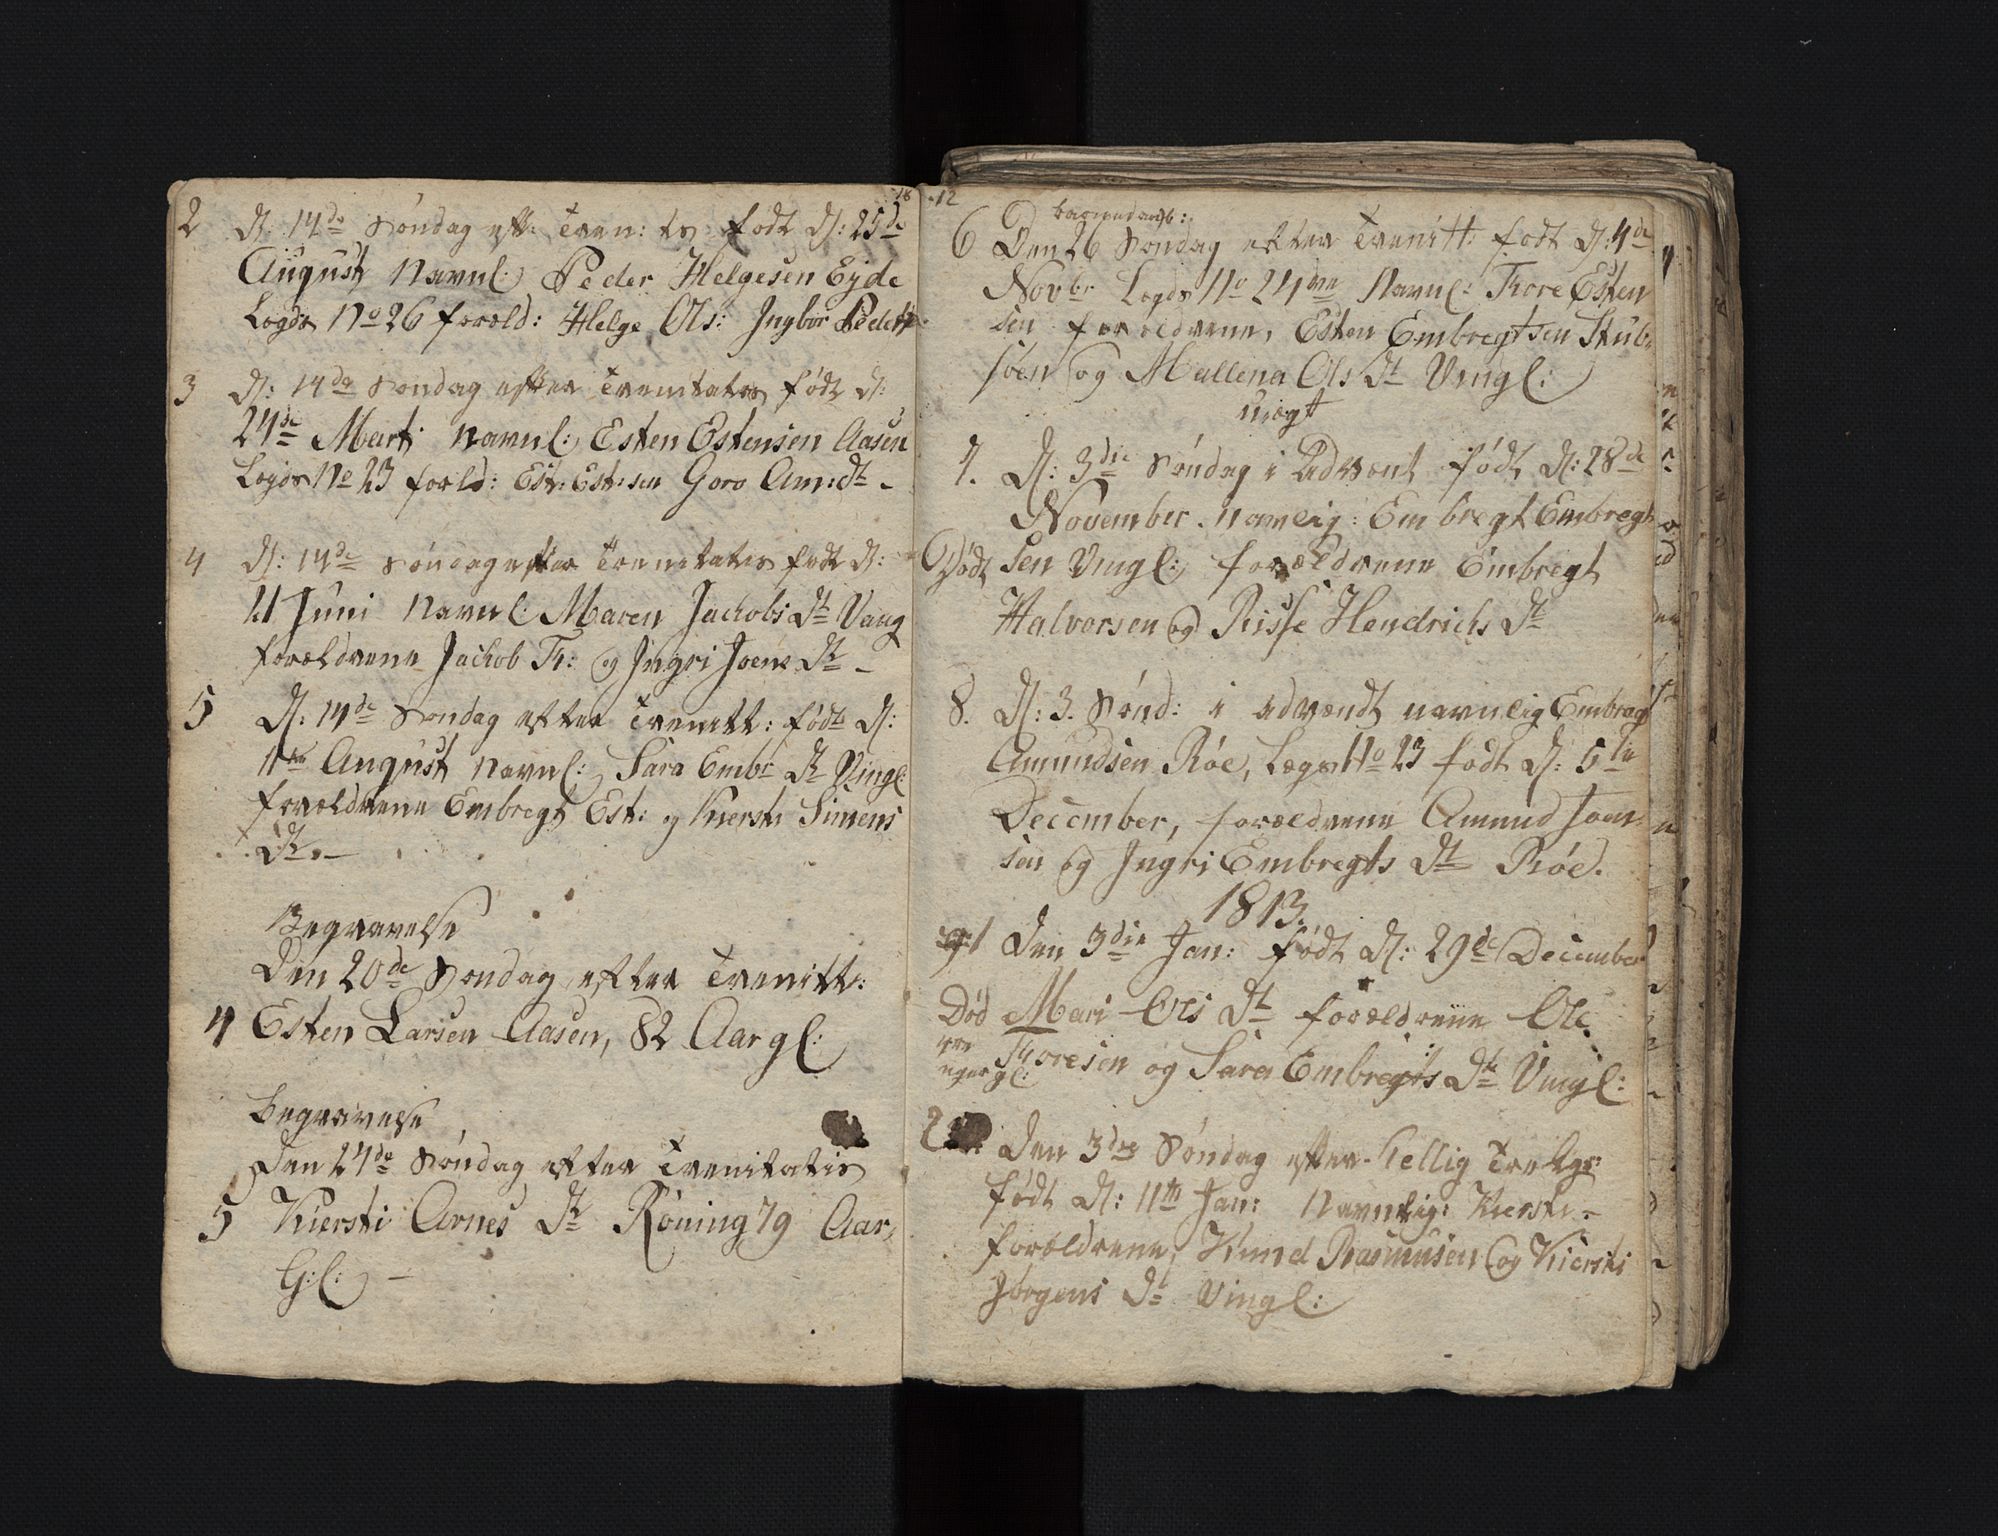 18
2 D: 14de Søndag eft: Tren: ts født d: 25de
August Navnl: Peder Helgesen Eyde
Legds No 26 foræld: Helge Ols: Ingbor Peders
3 D: 14de Søndag efter Trenitates født d:
24de Marti navnl: Esten Estensen Aasen
Legds No 23 forld: Est: Est:sen Goro Am:dt -
4 D: 14de Søndag efter Trenitates født d:
21 Juni Navnl: Maren Jachobs Dt Vang
forældrene Jachob Th: og Ingri Joens Dt -
5 D: 14de Søndag efter Trenitt: født d:
11te August Navnl: Sara Embr Dt Vingl:
forældrene Embregt Est: og Kiersti Simens
Dt. -
Begravelse
Den 20de Søndag efter Trenitt:
4 Esten Larsen Aasen, 82 Aar gl:
Begravelse
Den 24de Søndag efter Trenitatis
5 Kiersti Arnes Dt Røning 79 Aar
G:l: -
12
6 Den 26 Søndag efter Trenitt: født d: 4de
Novbr Legds No 24 Navnl: Thore Esten
sen forældrene, Esten Embregtsen Stub
søen og Mallena Ols Dt Vingl:
uægt
7. D: 3die Søndag i Advent født d: 28de
November. navnlig: Embregt Embregt
Død sen Vingl: forældrene Embregt
Halvorsen og Risse Hendrichs Dt
8. D: 3. Sønd: i advendt navnlig Embregt
Amundsen Røe, Legds No 23 født d: 5te
December, forældrene Amund Joen
sen og Ingri Embregts Dt Røe.
1813.
1 Den 3die Jan: født d: 29de December
Død Mari Ols Dt forældrene Ole
uger gl: Thoresen og Sara Embregts Dt Vingl:
2 Den 3die Søndag efter hellig Trekgs:
født d: 11te Jan: Navnlig: Kiersti -
forældrene, Knud Rasmusen og Kiersti
Jørgens Dt Vingl: